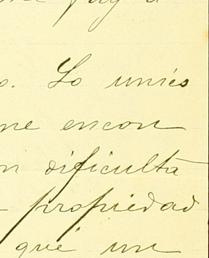 o. Lo unico
me encon
n dificulta
propiedad
que un